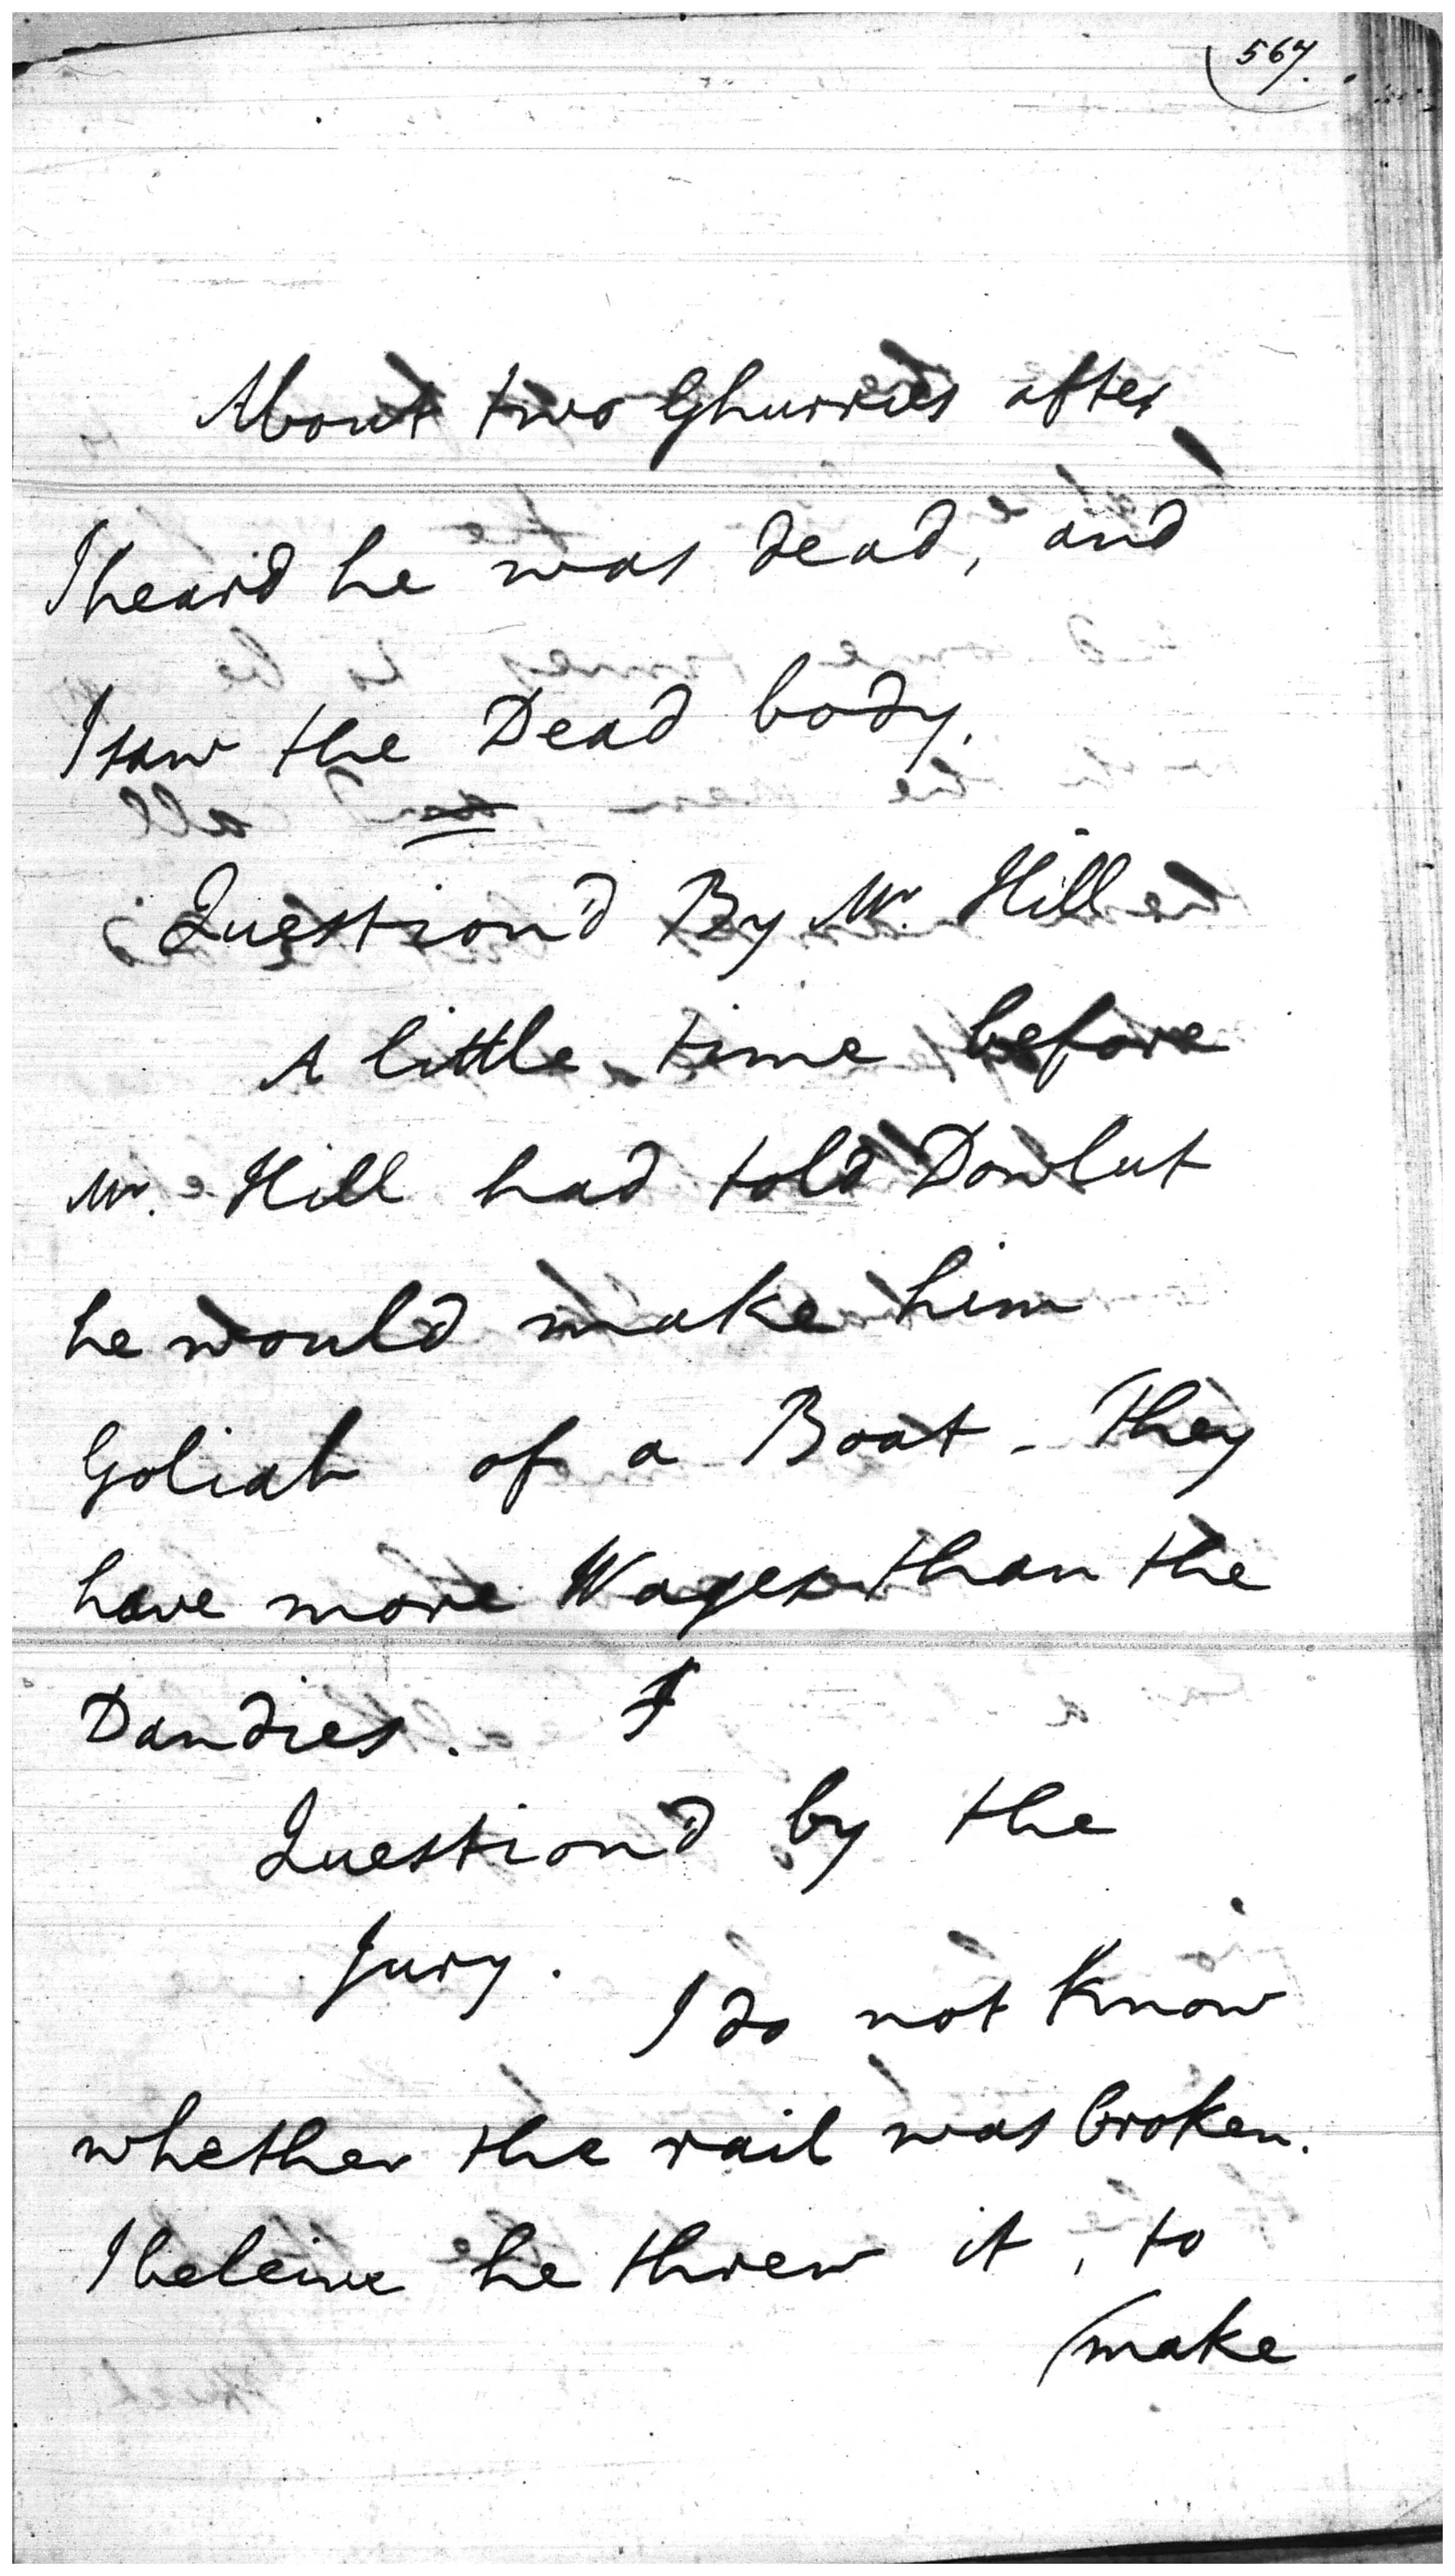 567.
About two Ghurries after
I heard he was dead, and
I saw the Dead body.
Question'd By Mr. Hill
A little time before
Mr. Hill had told Dowlut
he would make him
Goliah of a Boat - They
have more Wages than the
Dandies.
Question'd by the
Jury.
I do not know
whether the rail was broken.
I beleive he threw it, to
make